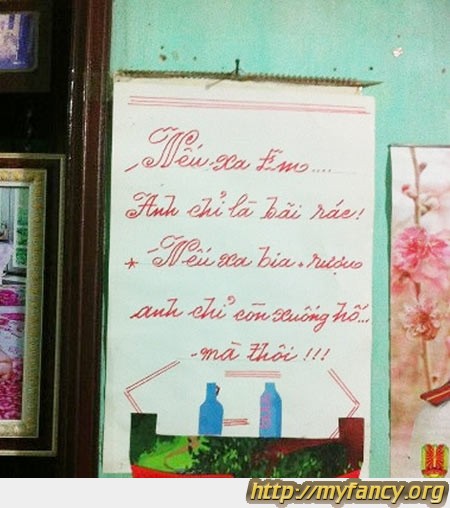 Nếu xa Em....
Anh chỉ là bãi rác!
* Nếu xa bia + rượu
anh chỉ còn xuống hố...
- mà thôi !!!
http://myfancy.org